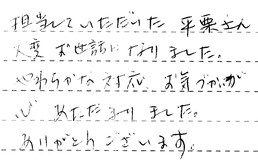 担当していただいた 平栗さん
大変 お世話になりました。
やわらかな対応、お気づかいが
心 あたたまりました。
ありがとうございます。